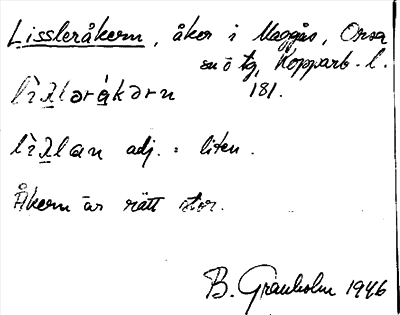 Lissleråkern, åker i Maggås, Orsa
sn o tg, Kopparb. l.
lìƛlərákərn 181.
lìƛlan adj. = liten.
Åkern är rätt stor.
B. Granholm 1946